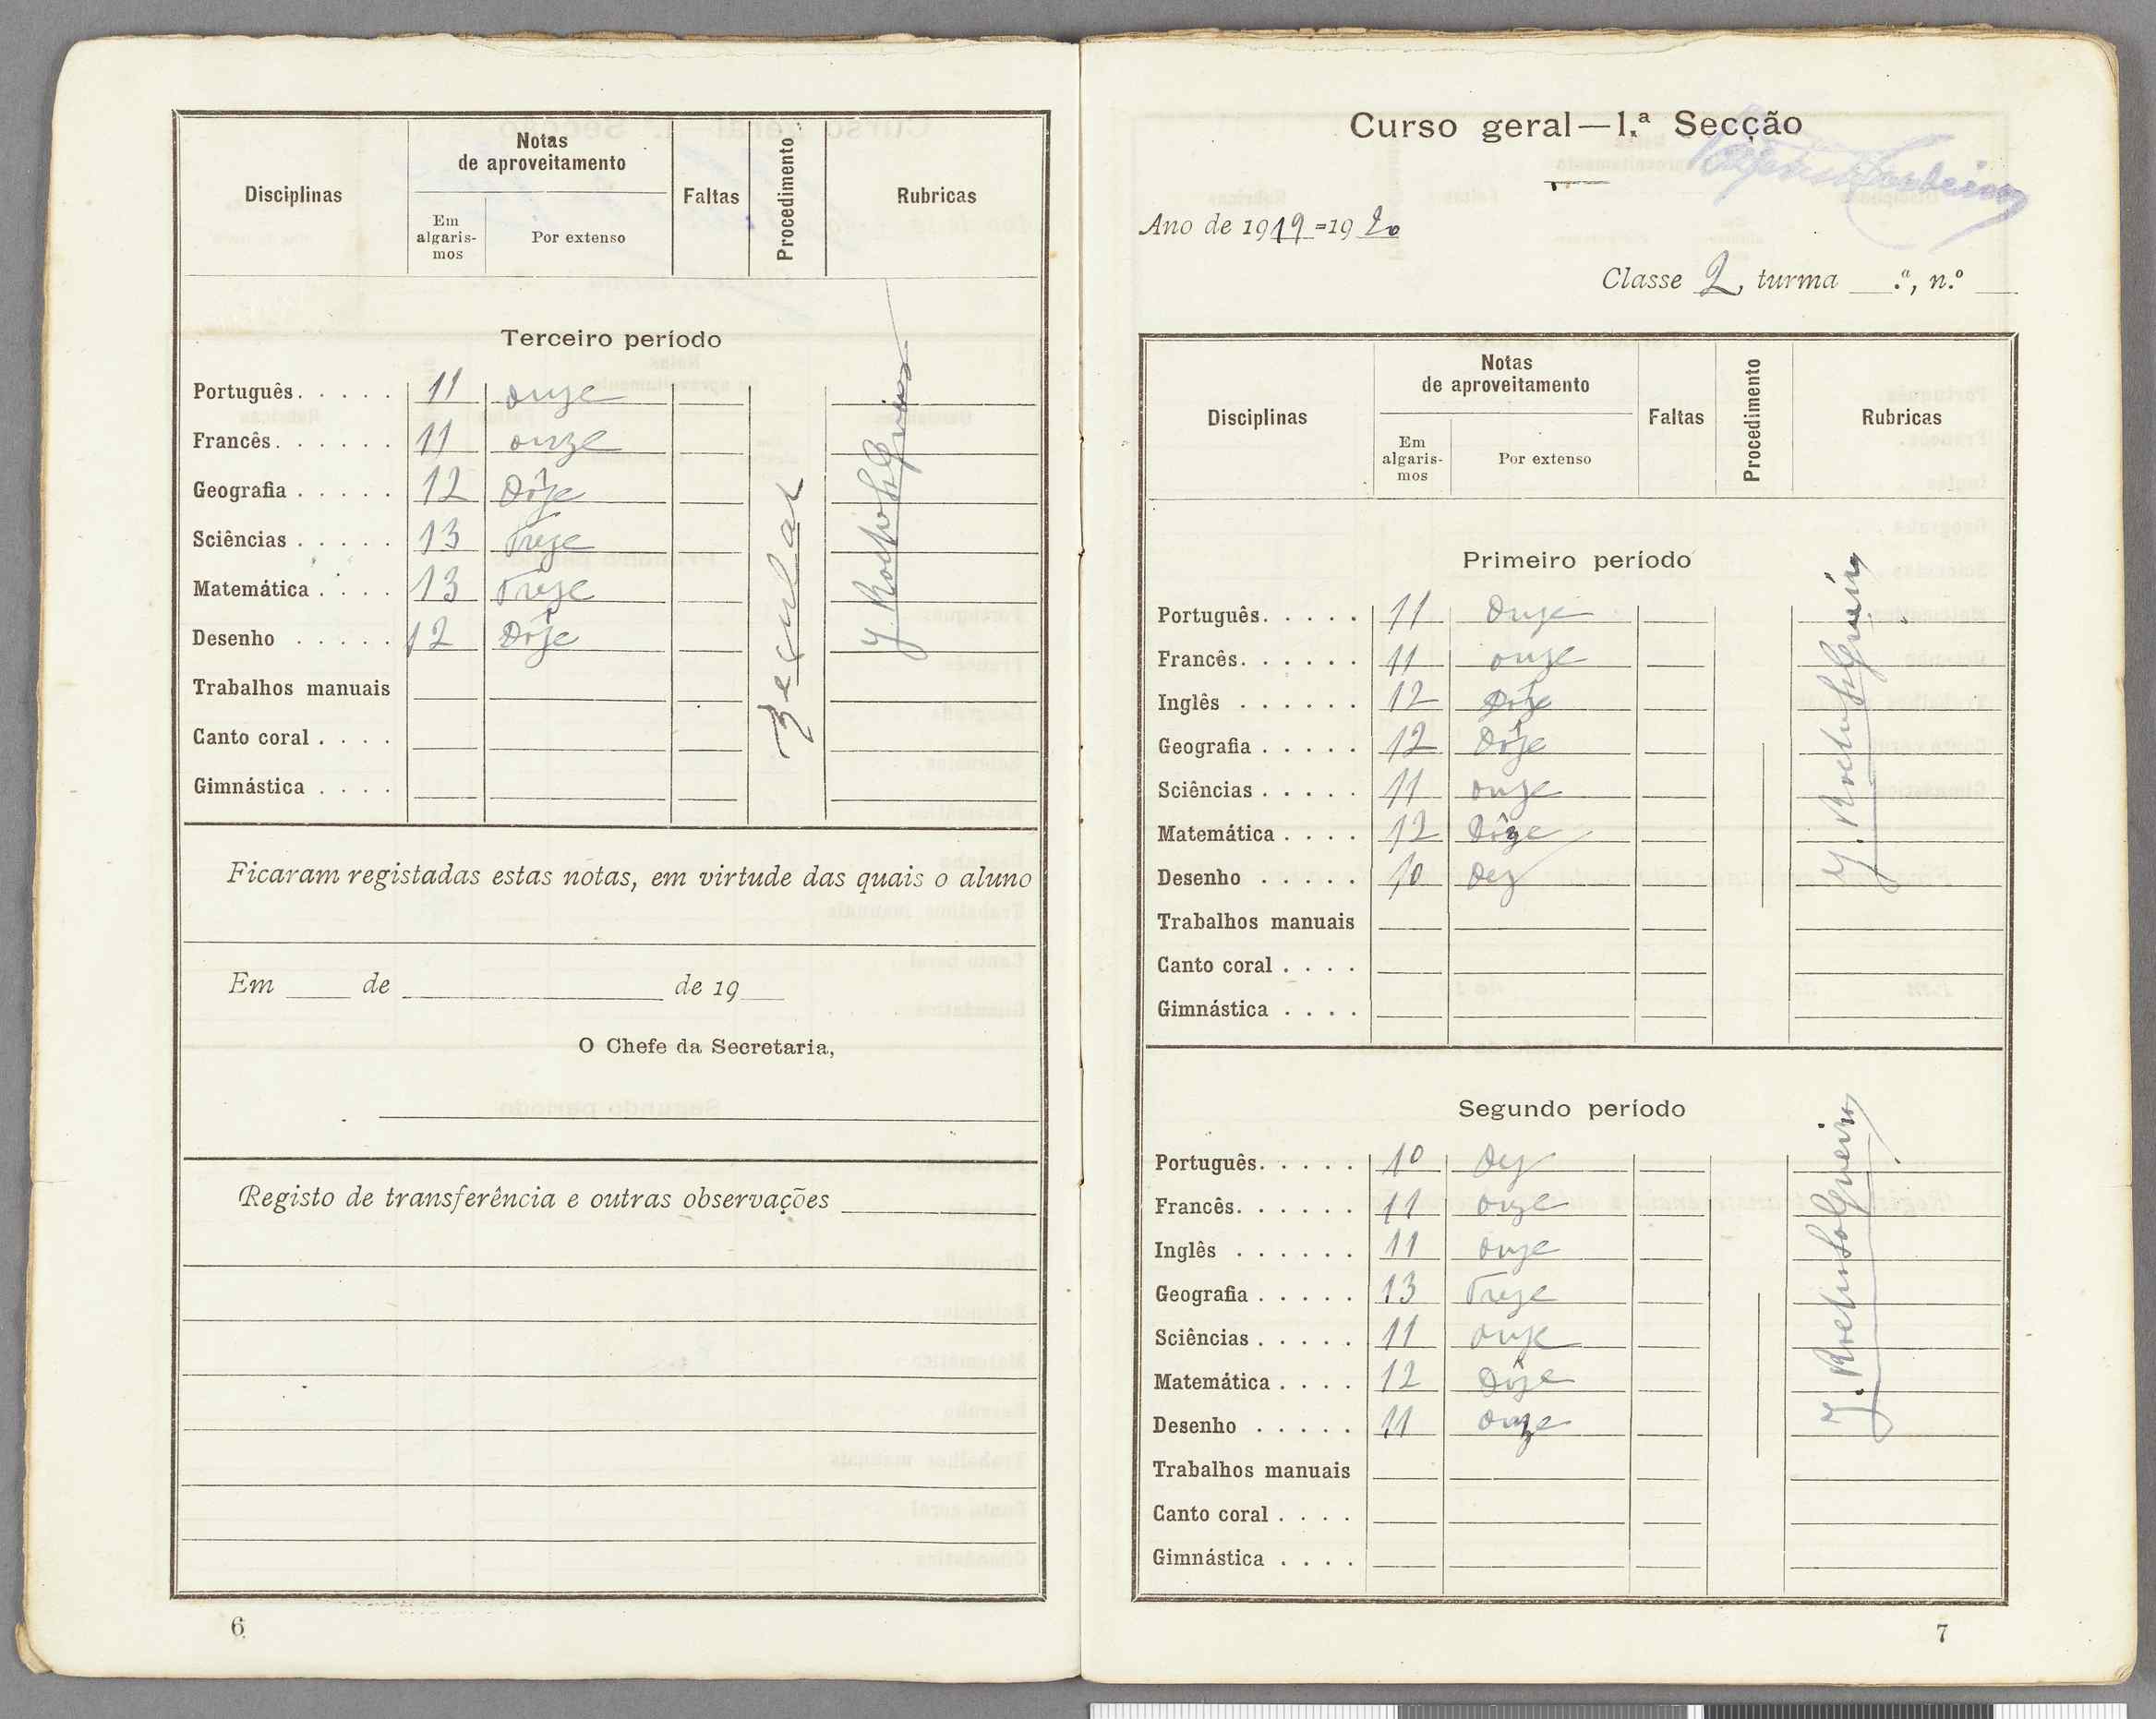 Disciplinas
Notas
de aproveitamento
Em
algaris-
mos
Por extenso
Faltas
Procedimento
Rubricas
Terceiro período
Português. . . . . 11 onze
Francês. . . . . . 11 onze
Geografia . . . . . 12 Dôze
Sciências . . . . . 13 Treze
Matemática . . . . 13 Treze
Desenho . . . . . 12 Dôze
Trabalhos manuais
Canto coral . . . .
Gimnástica . . . .
Ficaram registadas estas notas, em virtude das quais o aluno
Em ____ de ____ de 19__
O Chefe da Secretaria,
Registo de transferência e outras observações
6
Curso geral—1.ª Secção
Ano de 1919=1920
Classe 2, turma __.ª, n.º __
Disciplinas
Notas
de aproveitamento
Em
algaris-
mos
Por extenso
Faltas
Procedimento
Rubricas
Primeiro período
Português. . . . . 11 Onze
Francês. . . . . . 11 onze
Inglês . . . . . . 12 Dôze
Geografia . . . . . 12 Dôze
Sciências . . . . . 11 onze
Matemática . . . . 12 Dôze
Desenho . . . . . 10 Dez
Trabalhos manuais
Canto coral . . . .
Gimnástica . . . .
Segundo período
Português. . . . . 10 Dez
Francês. . . . . . 11 onze
Inglês . . . . . . 11 onze
Geografia . . . . . 13 Treze
Sciências . . . . . 11 onze
Matemática . . . . 12 Dôze
Desenho . . . . . 11 onze
Trabalhos manuais
Canto coral . . . .
Gimnástica . . . .
7